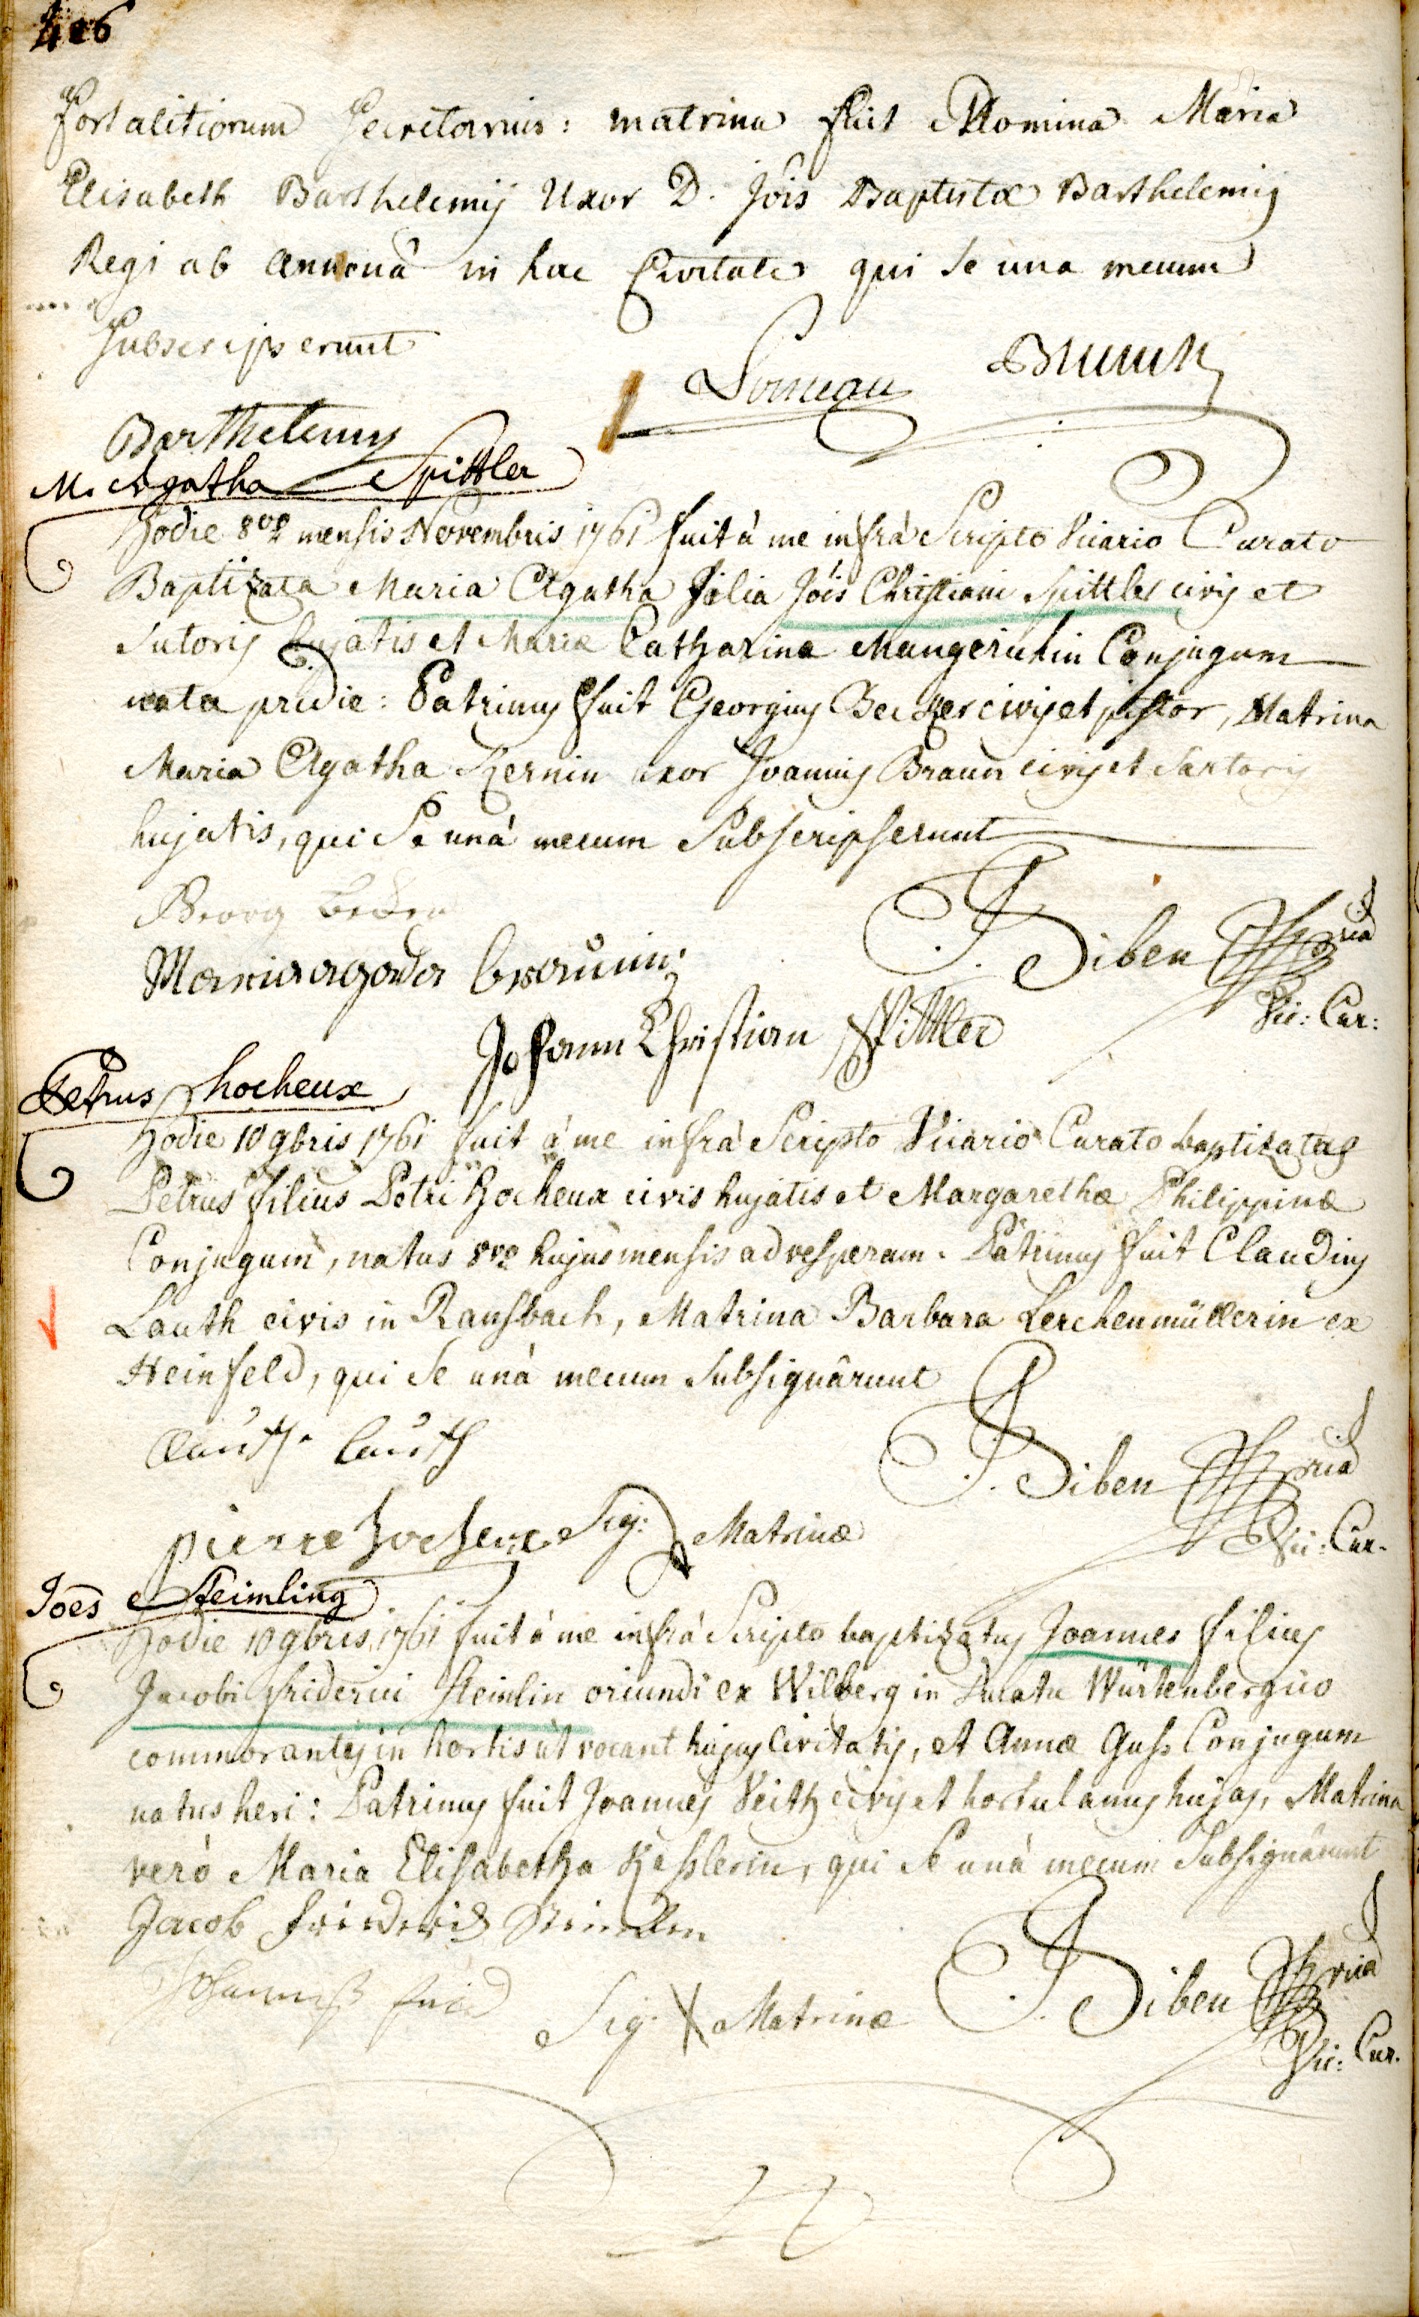 406
Fortalitiorum Secretarius: matrina fuit Domina Maria
Elisabeth Barthelemij Uxor D. Jöis Baptistæ Barthelemij
Regi ab annonâ in hac Civitate qui se una mecum
Subscripserunt
Barthelemy
M. Agatha Spittler
Hodie 8va mensis Novembris 1761 fuit à me infrà Scripto Vicario Curato
Baptizata Maria Agatha filia Jöis Christiani Spittler civis et
Sutoris hujatis et Mariæ Catharina Mangerichin Conjugum
nata pridie: Patrinus fuit Georgius Becker civis et pistor, Matrina
Maria Agatha Kernin uxor Joannis Braun civis et Sartoris
hujatis, qui Se unà mecum Subscripserunt
Georg Becker
J Siben
Maria agada braunin
Vic: Cur:
Johann Christian Spittler
Petrus hocheux
Hodie 10 9bris 1761 fuit à me infrà Scripto Vicario Curato baptizatus
Petrus filius Petri Hocheux civis hujatis et Margarethæ Philippinæ
Conjugum, natus 8va hujus mensis ad vesperam. Patrinus fuit Claudius
Lauth civis in Ransbach, Matrina Barbara Lerchenmüllerin ex
Heinfeld, qui Se unà mecum Subsignârunt
lauth
J. Siben
pierre hocheux Sig: Matrinæ
Vic: Cur.
Joes Steimling
Hodie 10 9bris 1761 fuit à me infrà Scripto baptizatus Joannes filius
Jacobi friderici Steinlin oriundi ex Wilberg in Ducatu Würtenbergico
commorantis in hortis ut vocant hujus Civitatis, et Annæ Guss Conjugum
natus heri: Patrinus fuit Joannes Veith civis et hortulanus hujas, Matrina
verò Maria Elisabetha Kesslerin, qui Se unà mecum Subsignârunt
Jacob friderich
J. Siben
Sig. X Matrinæ
Vic: Cur.